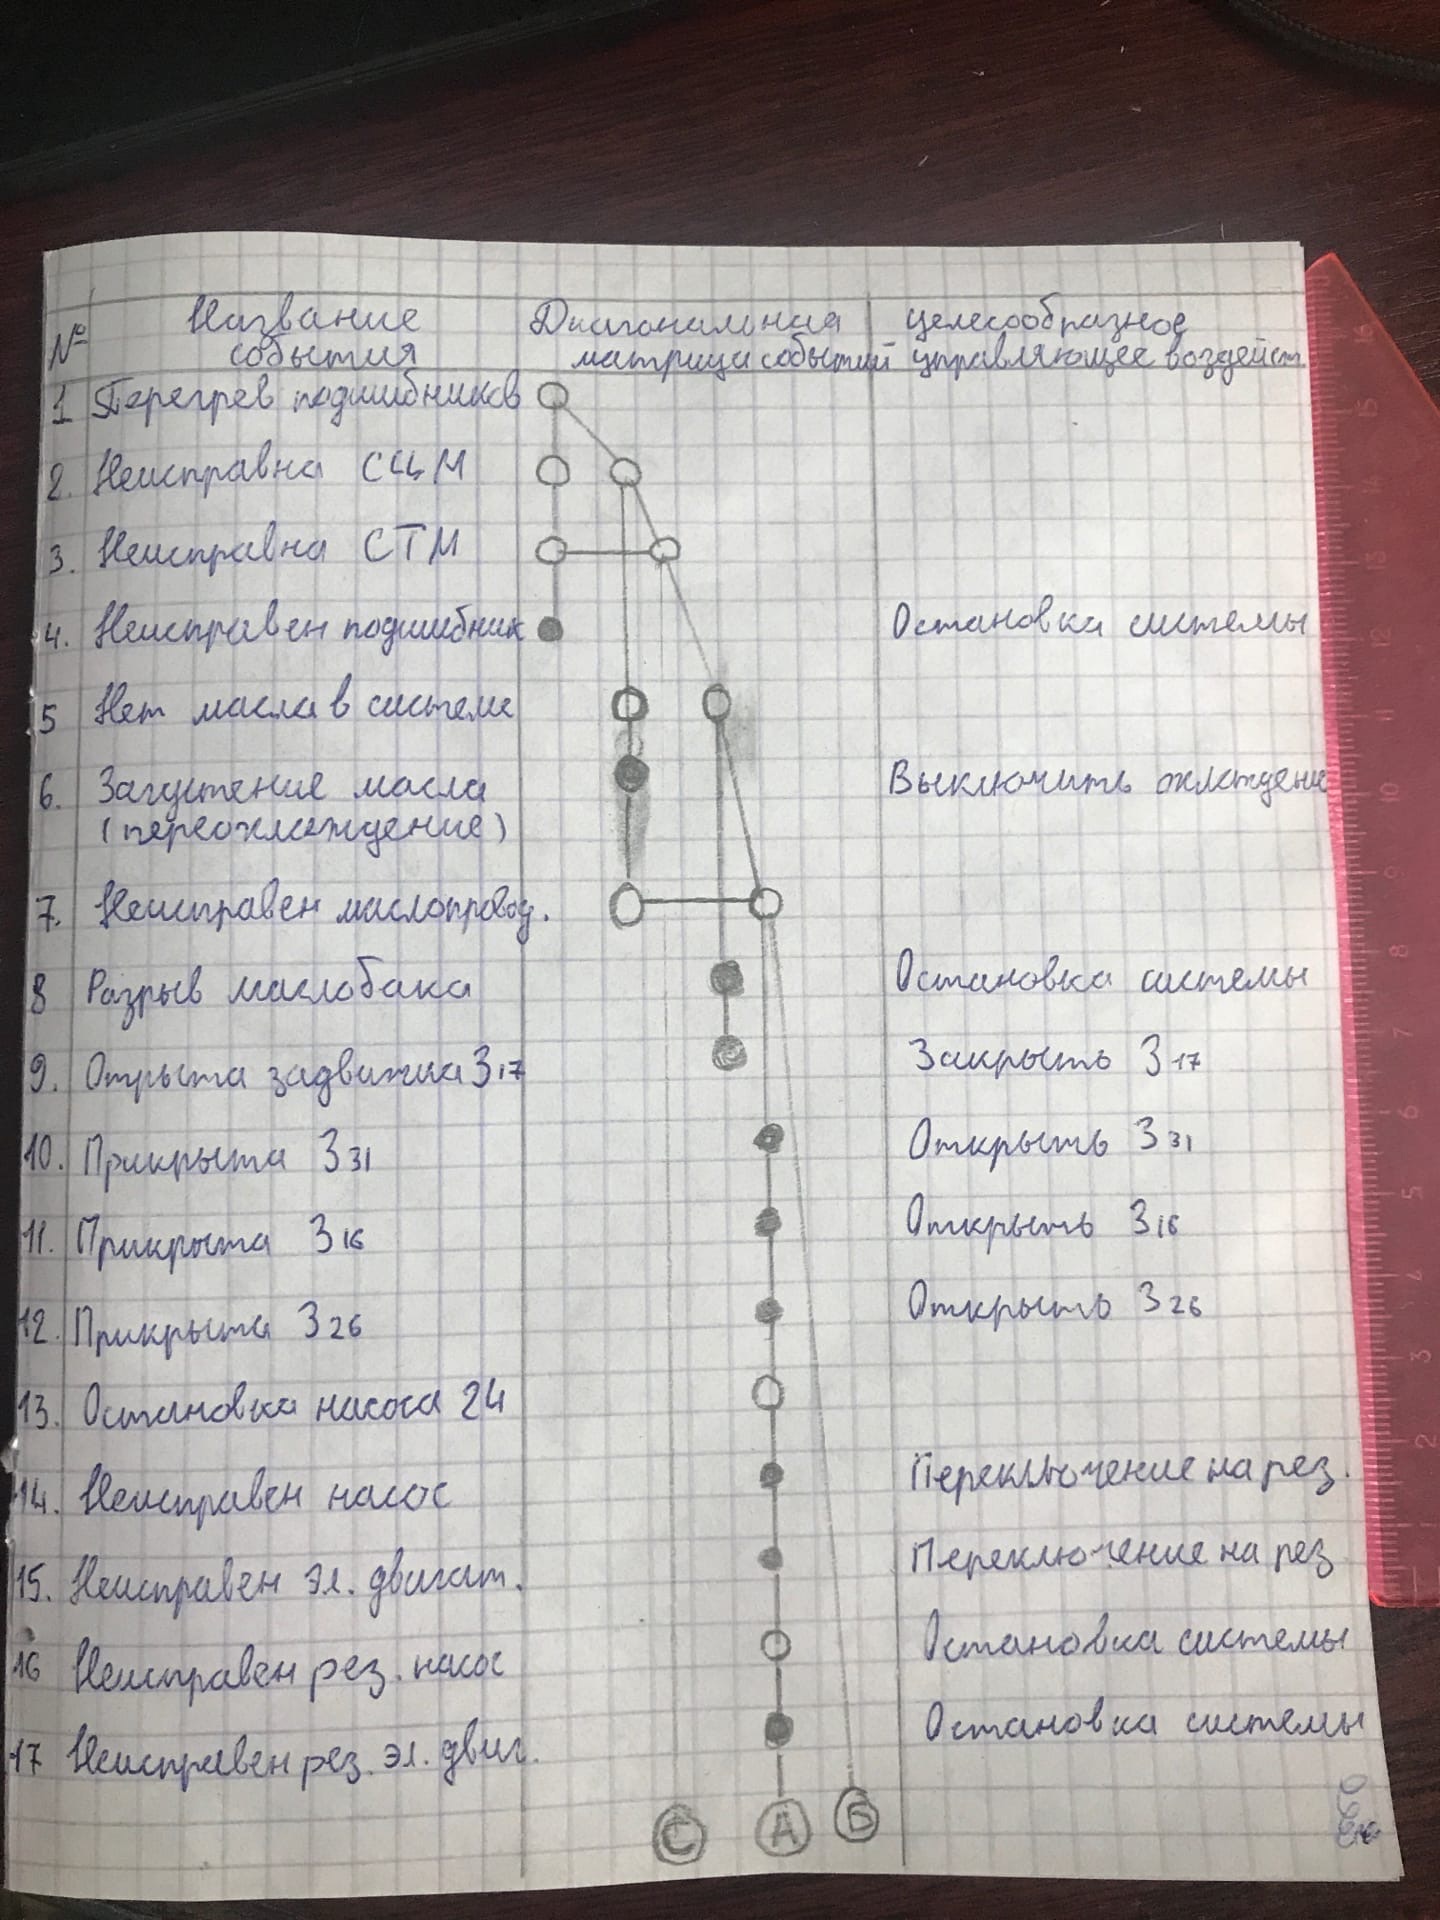 № Название события Диагональная матрица событий целесообразное управляющее воздейст.
1 Перегрев подшибников
2. Неисправна СЦМ
3. Неисправна СТМ
4. Неисправен подшибник Остановка системы
5 Нет масла в системе
6. Загустение масла Выключить охлаждение
(переохлаждение)
7. Неисправен маслопровод.
8 Разрыв маслобака Остановка системы
9. Открыта задвижка З17 Закрыть З17
10. Прикрыта З31 Открыть З31
11. Прикрыта З16 Открыть З16
12. Прикрыта З26 Открыть З26
13. Остановка насоса 24
14. Неисправен насос Переключение на рез.
15. Неисправен эл. двигат. Переключение на рез
16 Неисправен рез. насос Остановка системы
17 Неисправен рез. эл. двиг. Остановка системы
С А Б